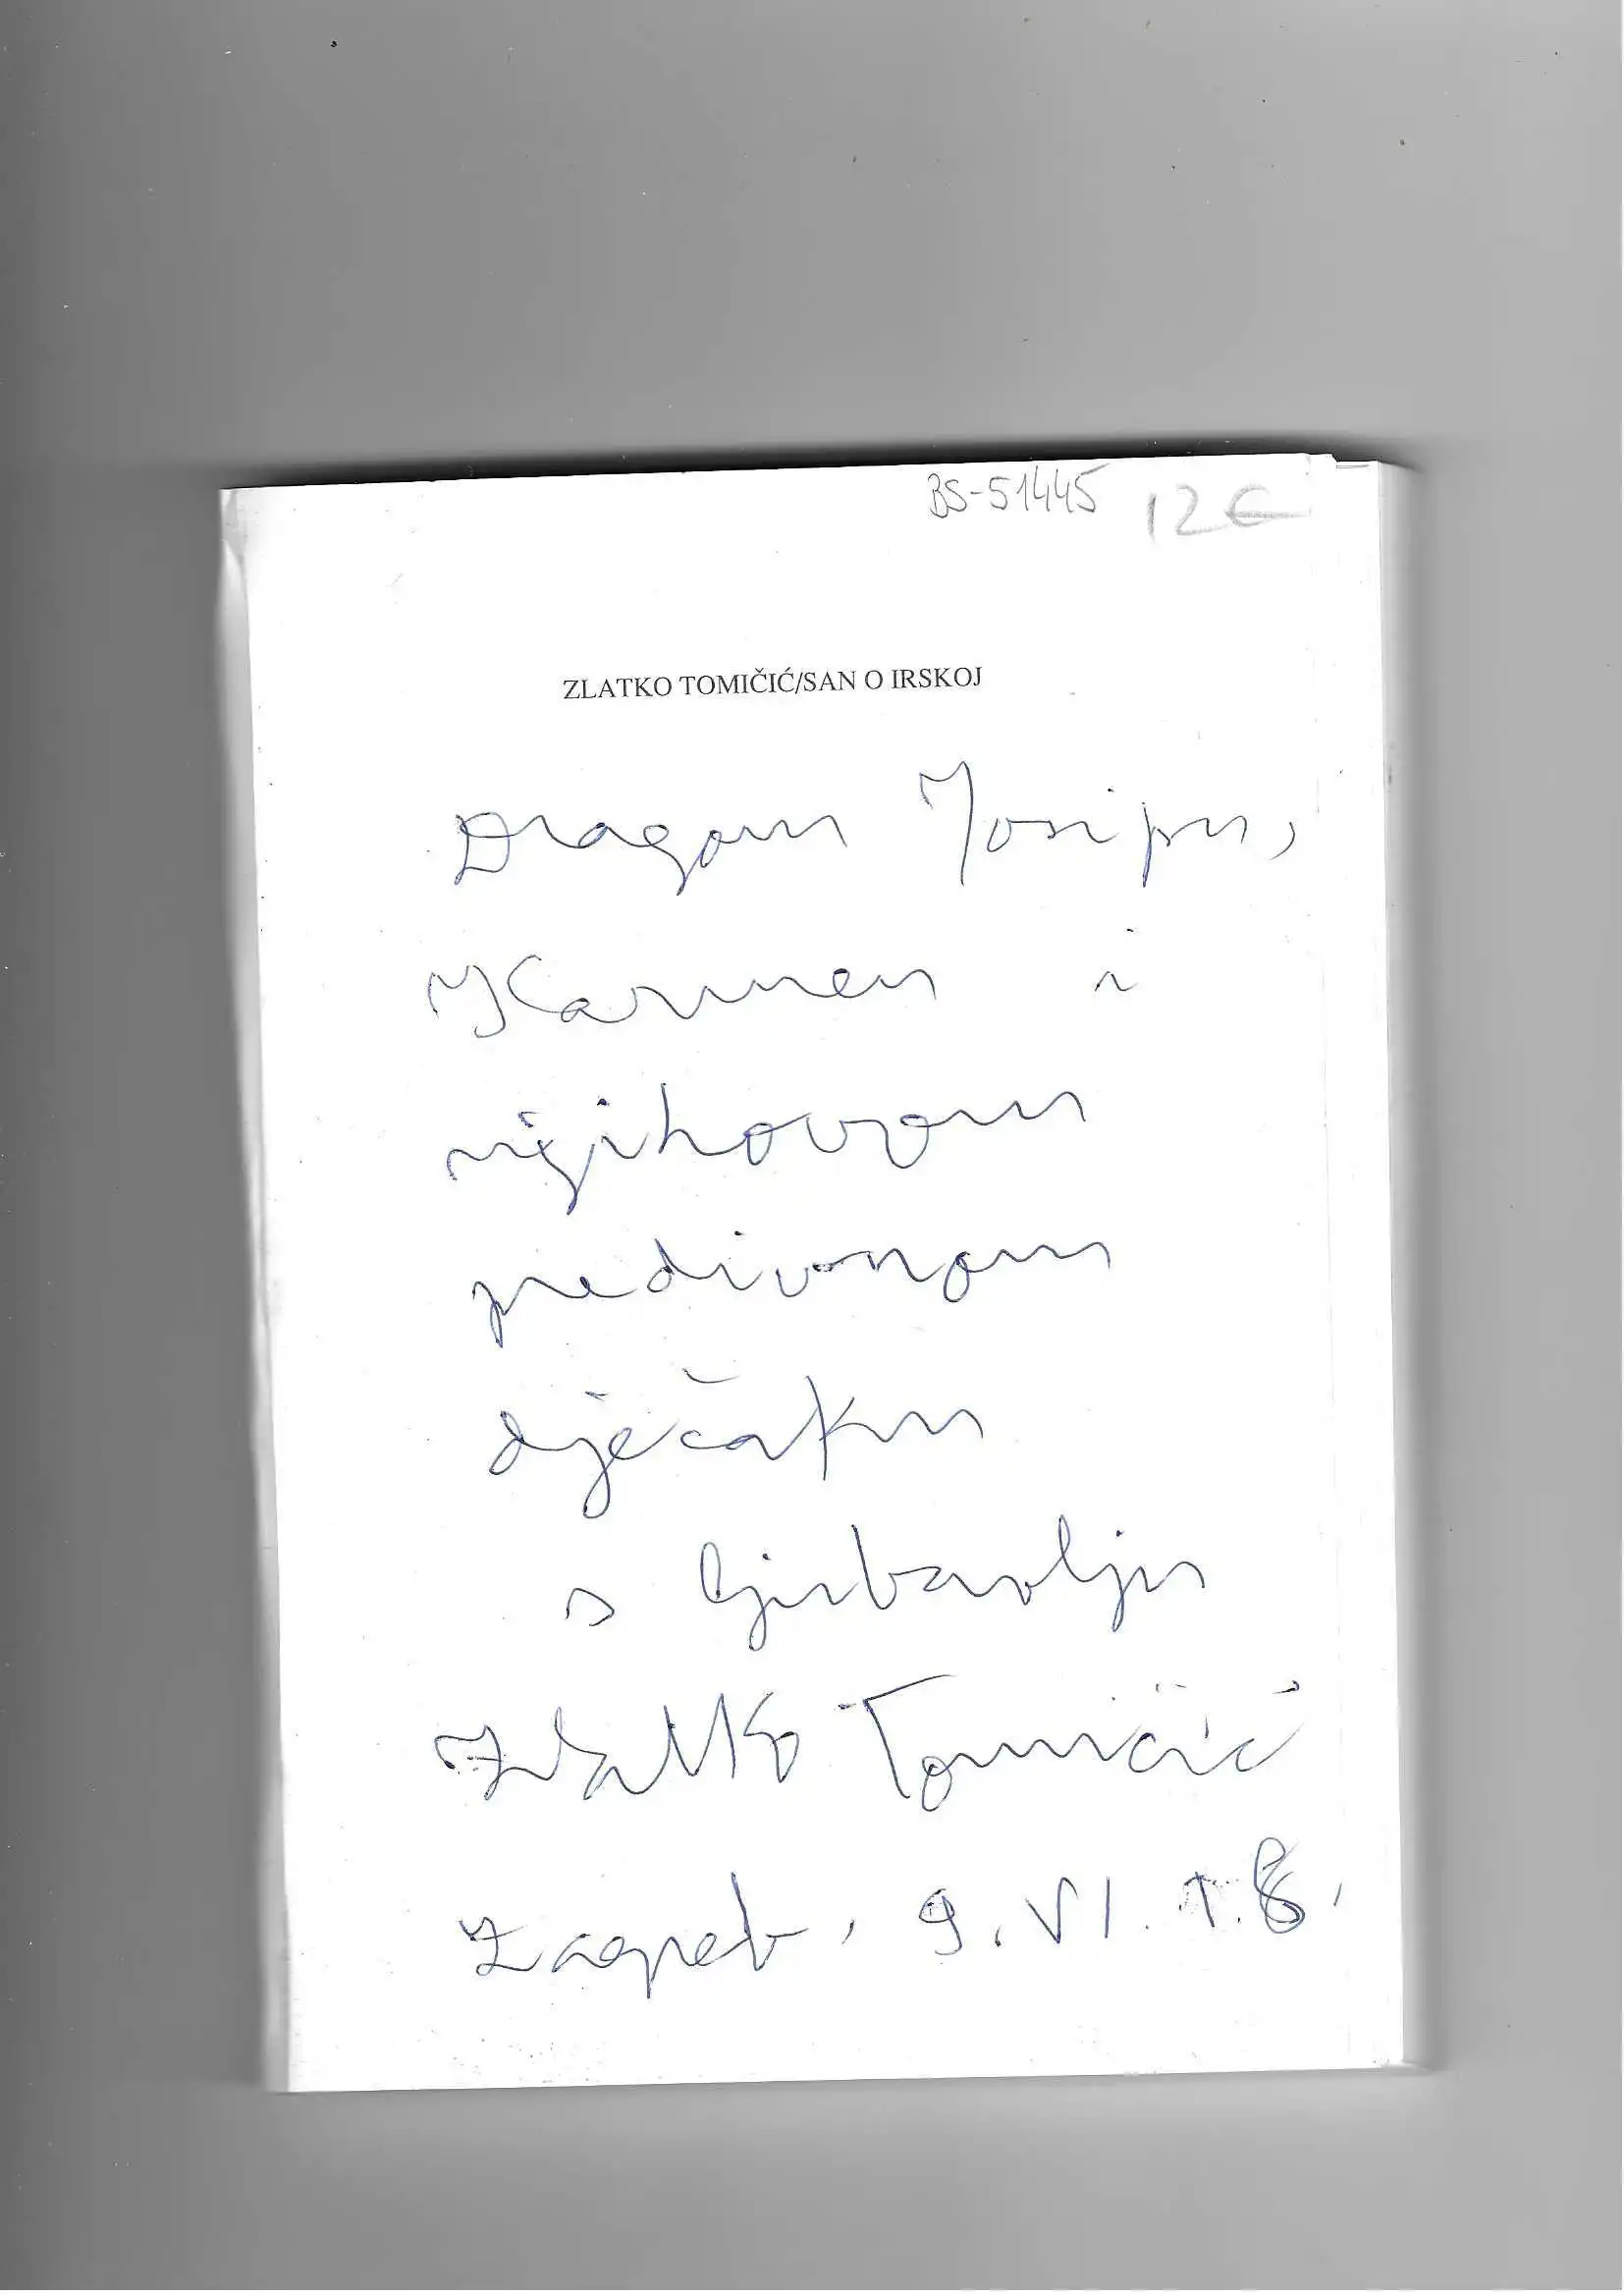 BS-51445 12€
ZLATKO TOMIČIĆ/SAN O IRSKOJ
Dragom Josipu,
Karmen i
njihovom
predivnom
dječaku
s ljubavlju
Zlatko Tomičić
Zagreb, 9. VI.